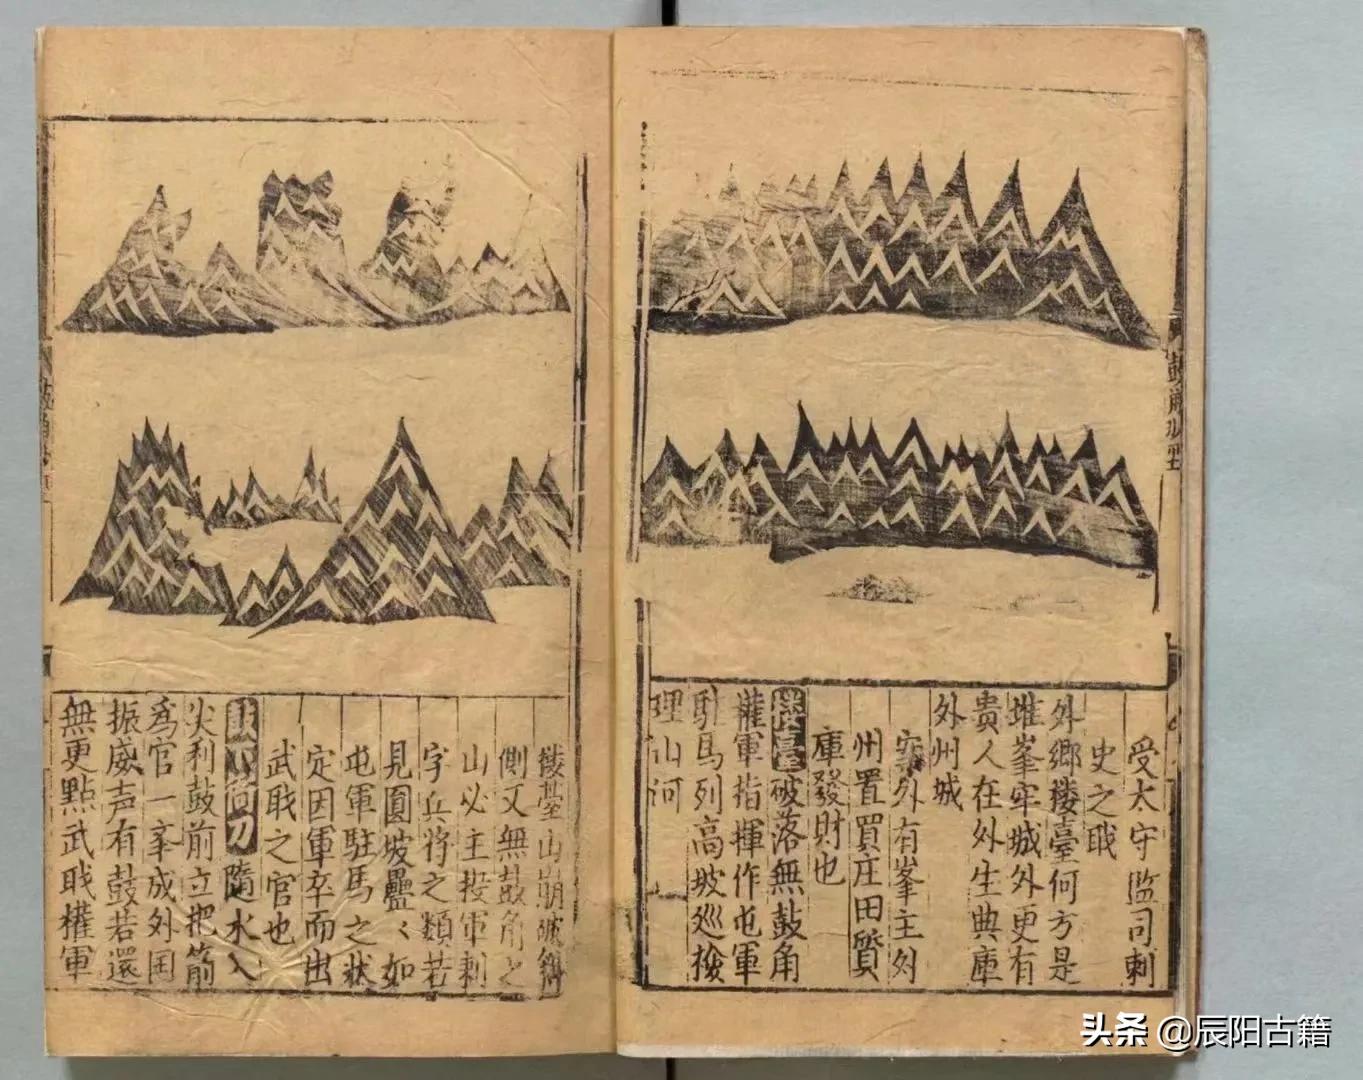 受太守监司刺
史之職
外鄉楼臺何方是
堆峯牢城外更有
貴人在外生典庫
外州城
案外有峯主外
州置買庄田質
庫發財也
樓臺破落無鼓角
權軍指揮作屯軍
駐馬列高坡巡檢
理山河
楼臺山崩破鎖
側又無鼓角之
山必主投軍刺
字兵将之類若
見圓坡疊〻如
屯軍駐馬之狀
定因軍卒而出
武職之官也
隨水入
尖利鼓前立把箭
為官一宰成外国
振威声有鼓若還
無更點武职權軍
头条 @辰阳古籍